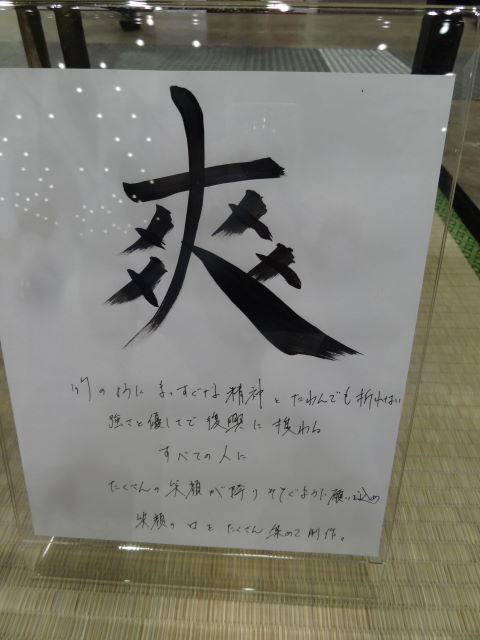 爽
竹のようにまっすぐな精神とたわんでも折れない
強さと優しさで復興に携わる
すべての人に
たくさんの笑顔が降りそそぐように願い込め
笑顔の口をたくさん集めて制作。